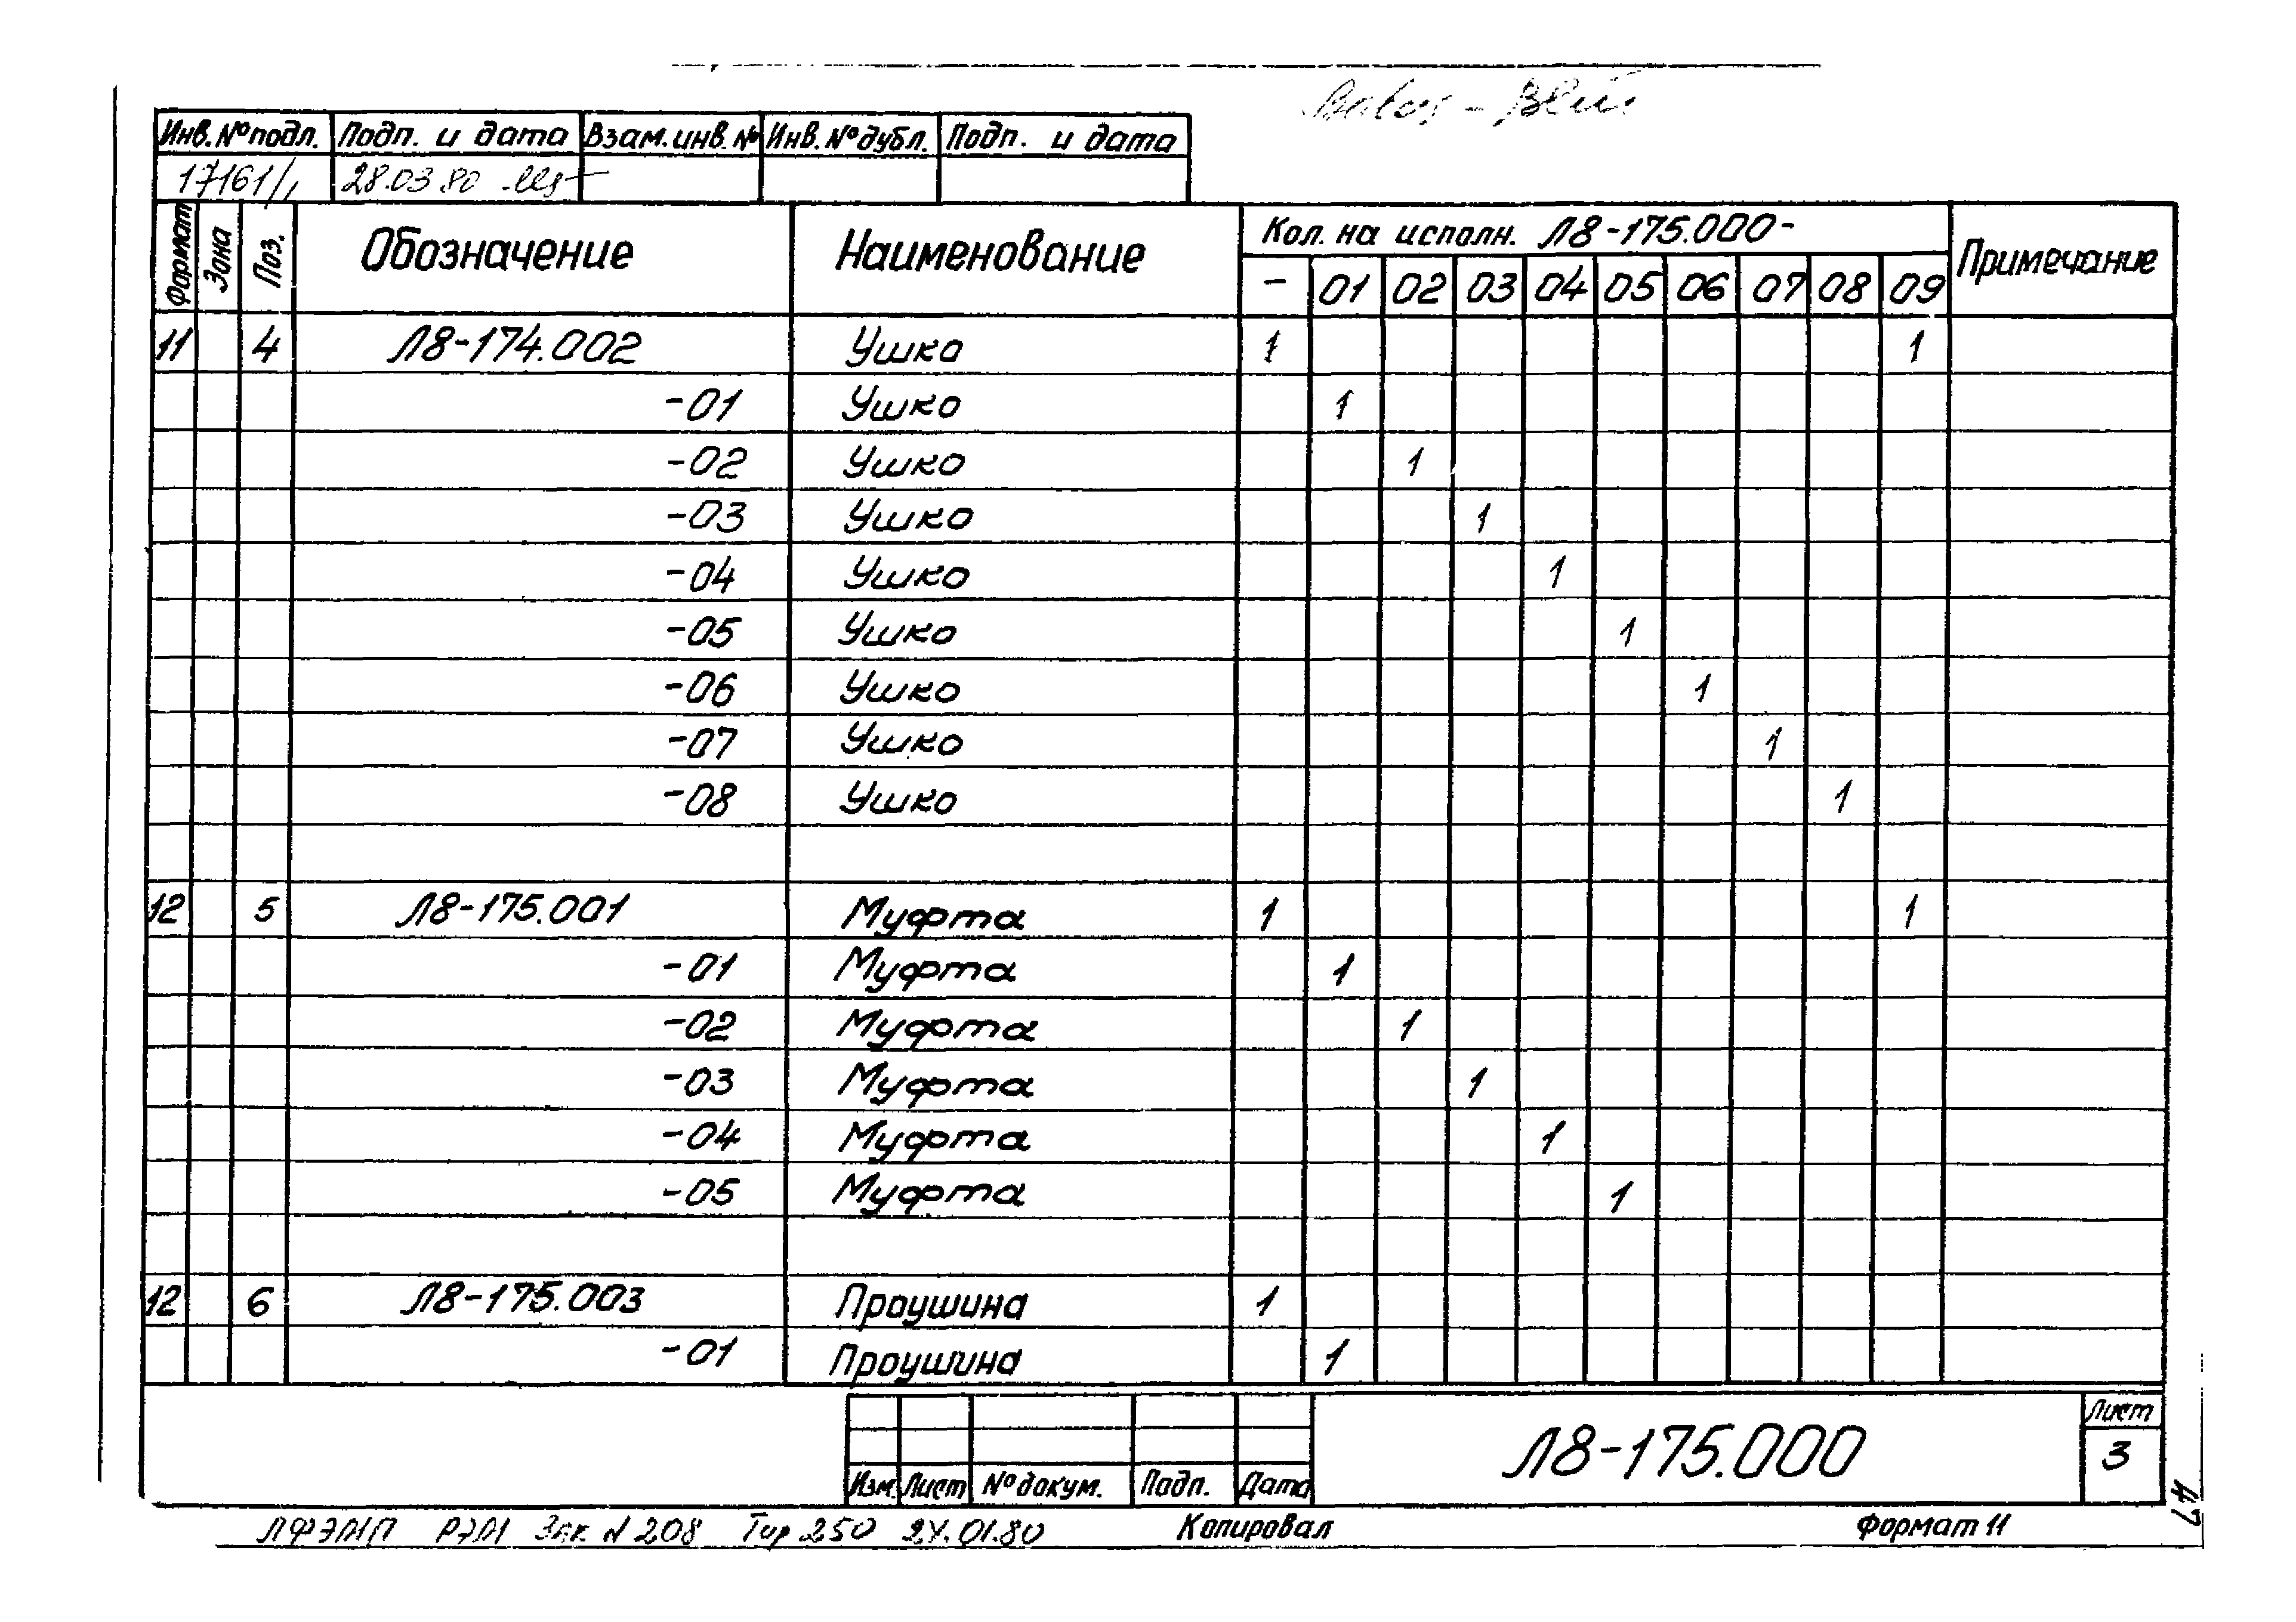 Инв.№подл. Подп. и дата Взам.инв.№ Инв.№дубл. Подп. и дата
17161/1 28.03.80
Формат Зона Поз. Обозначение Наименование Кол. на исполн. Л8-175.000- Примечание
- 01 02 03 04 05 06 07 08 09
11 4 Л8-174.002 Ушко 1 1
-01 Ушко 1
-02 Ушко 1
-03 Ушко 1
-04 Ушко 1
-05 Ушко 1
-06 Ушко 1
-07 Ушко 1
-08 Ушко 1
12 5 Л8-175.001 Муфта 1 1
-01 Муфта 1
-02 Муфта 1
-03 Муфта 1
-04 Муфта 1
-05 Муфта 1
12 6 Л8-175.003 Проушина 1
-01 Проушина 1
Изм. Лист №докум. Подп. Дата
Л8-175.000
Лист
3
Зак N 208 Тир 250 Копировал Формат 11
47